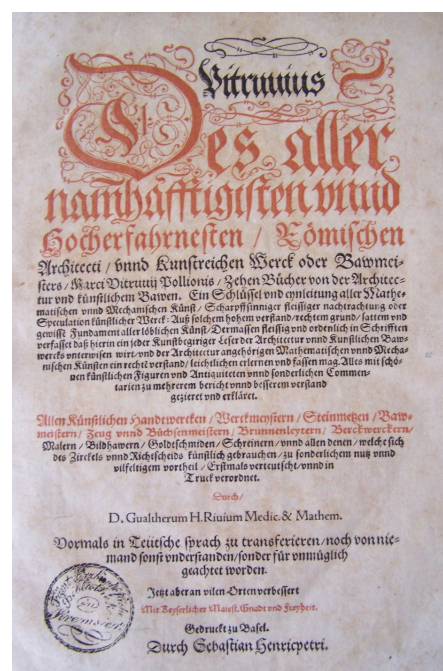 Vitruuius
Des aller
namhafftigisten vnnd
Hocherfahrnesten / Römischen
Architecti / vnnd Kunstreichen Werck oder Bawmei-
sters / Marci Vitruuij Pollionis / Zehen Bücher von der Architec-
tur vnd künstlichem Bawen. Ein Schlüssel vnd eynleitung aller Mathe-
matischen vnnd Mechanischen Künst / Scharpffsinniger fleissiger nachtrachtung oder
Speculation künstlicher Werck: Auß solchem hohem verstand / rechtem grund / sattem vnd
gewisse Fundament aller löblichen Künst / Dermassen fleissig vnd ordenlich in Schrifften
verfasset daß hierin ein jeder Kunstbegiriger Leser der Architectur vnnd Kunstlichen Baw-
wercks vnterwisen wirt / vnd der Architectur angehörigem Mathematischen vnnd Mecha-
nischen Künsten ein recht verstand / leichtlichen erlernen vnd fassen mag. Alles mit schö-
nen künstlichen Figuren vnd Antiquiteten vnnd sonderlichen Commen-
tarien zu mehrerem bericht vnnd besserem verstand
gezieret vnd erkläret.
Allen Künstlichen Handtwercken / Werckmeystern / Steinmetzen / Baw-
meistern / Zeug vnnd Büchsenmeistern / Brunnenleytern / Berckwerckern /
Malern / Bildhawern / Goldtschmiden / Schreinern / vnnd allen denen / welche sich
des Zirckels vnnd Richtscheids künstlich gebrauchen / zu sonderlichem nutz vnnd
vilfeltigem vortheil / Erstmals verteutscht / vnnd in
Truck verordnet.
Durch /
D. Gualtherum H. Riuium Medic. & Mathem.
Vormals in Teütsche sprach zu transferieren / noch von nie-
mand sonst vnderstanden / sonder für vnmüglich
geachtet worden.
Jetzt aber an vilen Orten verbessert
Mit Keyserlicher Maiest. Gnadt vnd Freyheit.
Gedruckt zu Basel.
Durch Sebastian Henricpetri.